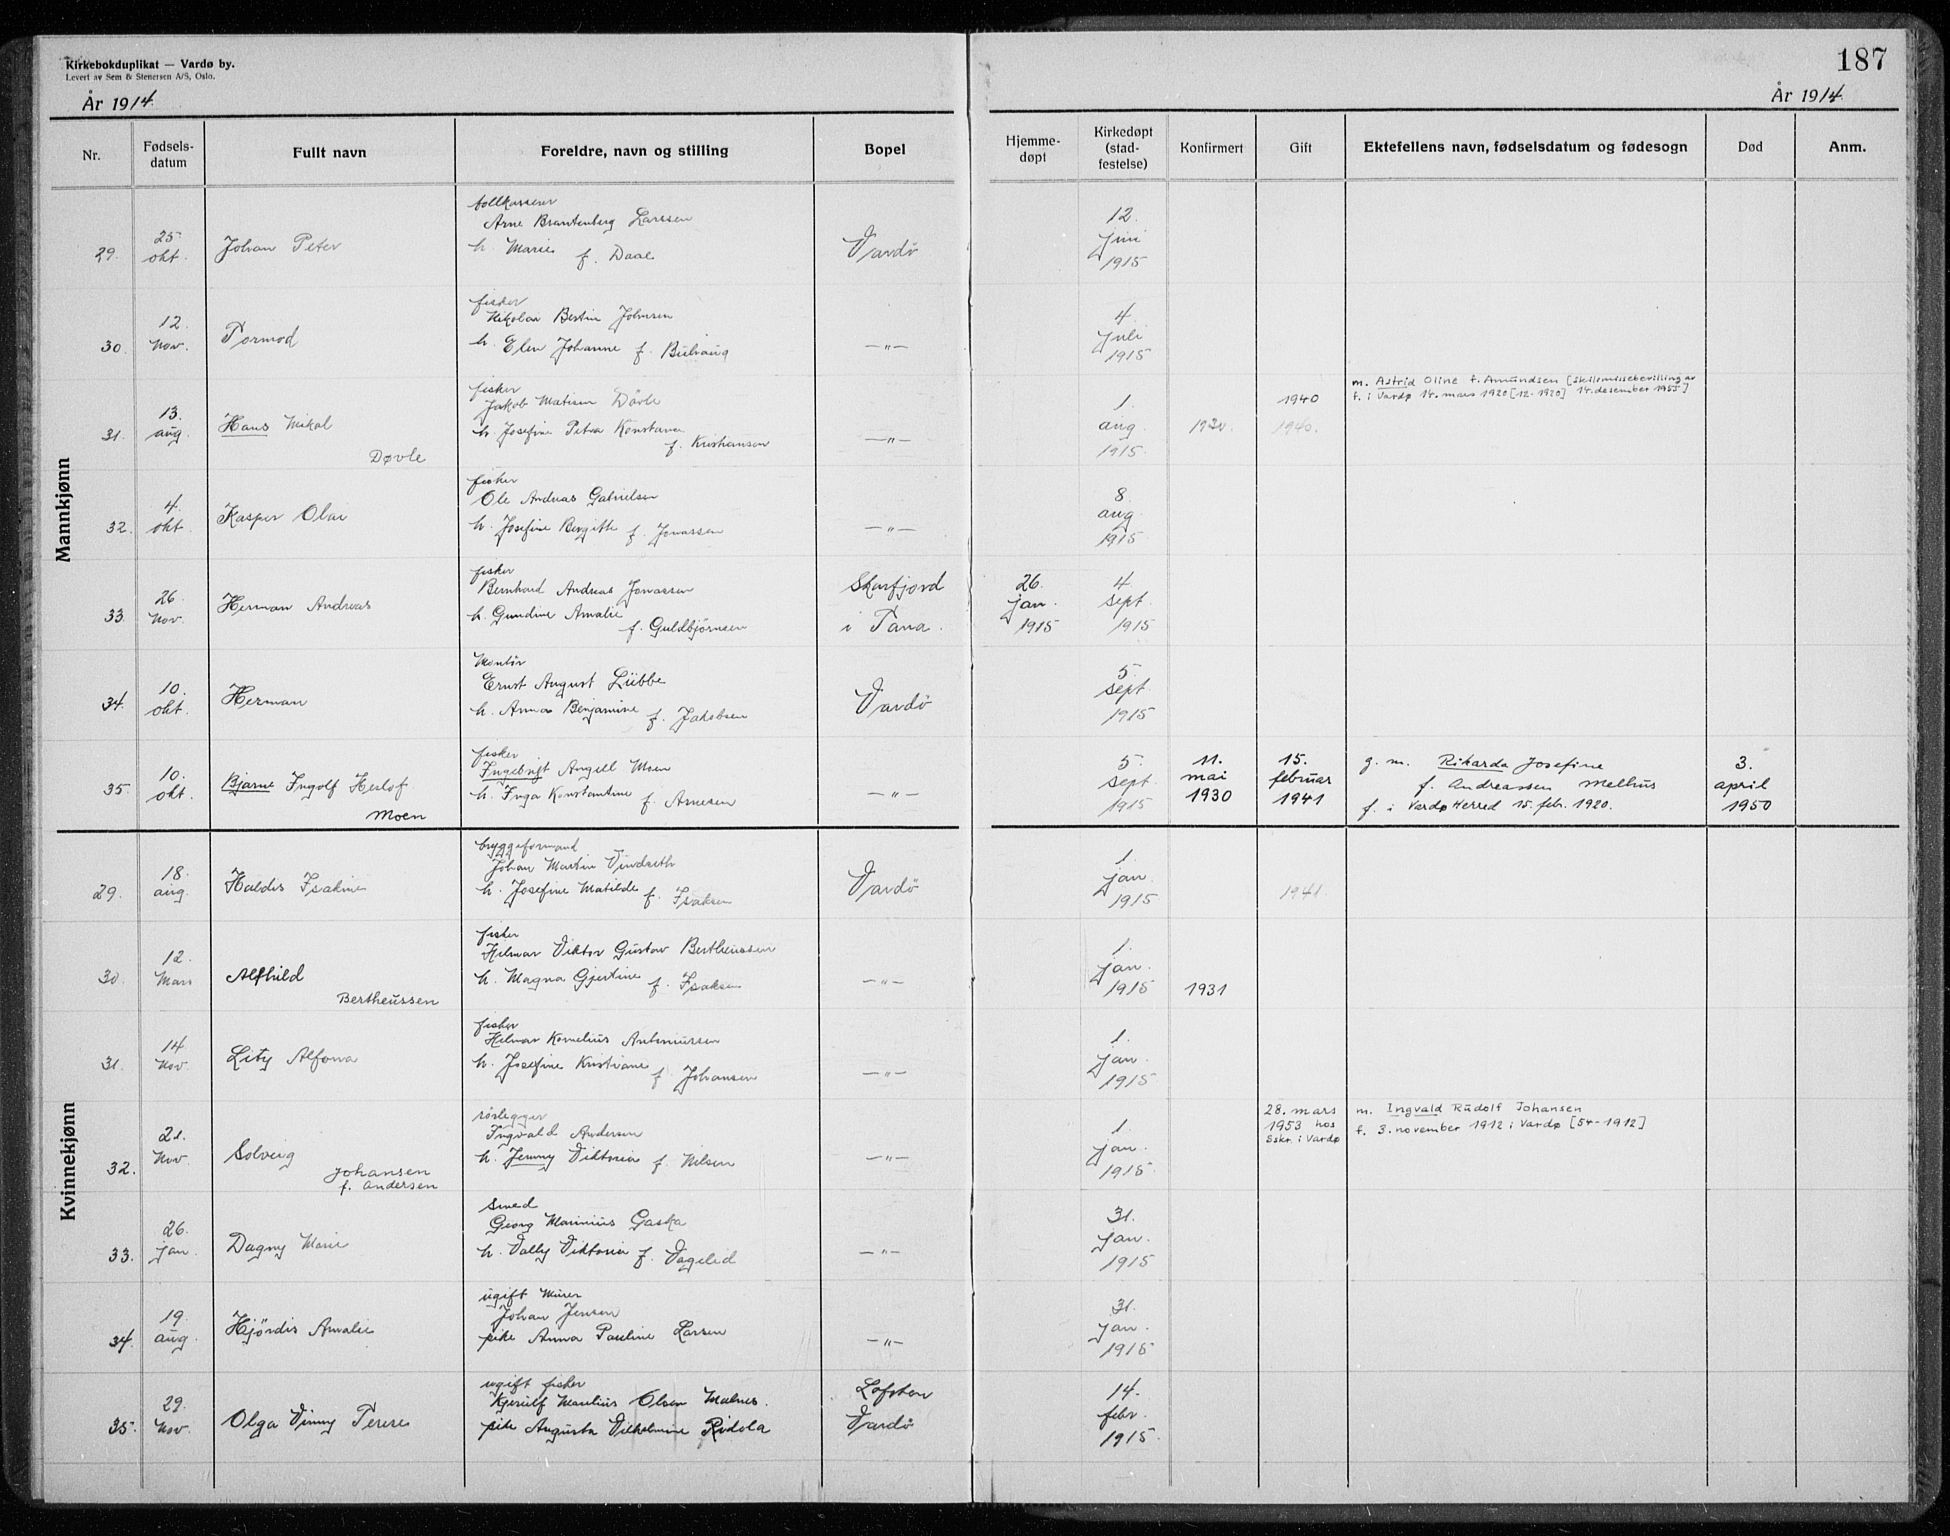 Kirkebokduplikat — Vardø by.
Levert av Sem & Stenersen A/S, Oslo.
187
År 1914
År 1914
Nr.
Fødsels-
datum
Fullt navn
Foreldre, navn og stilling
Bopel
Hjemme-
døpt
Kirkedøpt
(stad-
festelse)
Konfirmert
Gift
Ektefellens navn, fødselsdatum og fødesogn
Død
Anm.
Mannkjønn
29.
25
okt.
Johan Peter
tollkasserer
Arne Brantenberg Larssen
h. Marie f. Daae
Vardø
12.
juni
1915
30.
12.
Nov.
Tormod
fisker
Nikolai Bertin Johnsen
h. Elen Johanne f.
—„—
4
juli
1915
31.
13.
aug.
Hans Mikal
Døvle
fisker
Jakob Matisen Døvle
h. Josefine Petra Konstance
f. Kristiansen
—„—
1.
aug.
1915.
1930.
1940
1940.
m. Astrid Oline f. Amundsen [skilsmissebevilling av
f. i Vardø 14. mars 1920 [12-1920] 14. desember 1955]
32.
4.
okt.
Kasper Olai
fisker
Ole Andreas Gabrielsen
h. Josefine Bergitte f. Jonassen
—„—
8.
aug.
1915.
33.
26.
Nov.
Herman Andreas
fisker
Bernhard Andreas Jonassen
h. Gundine Amalie
f. Guldbjørnsen
Skarfjord
i Tana.
26.
jan.
1915
4.
sept.
1915
34.
10.
okt.
Herman
Montør
Ernst August Lübbe
h. Anna Benjamine f. Jakobsen
Vardø
5.
sept.
1915
35.
10.
okt.
Bjarne Ingolf Heslof
Moen
fisker
Ingebrigt Angell Moen
h. Inga Konstantine f. Arnesen
—„—
5.
sept.
1915
11.
mai
1930
15.
februar
1941
g. m. Rikarda Josefine
f. Andreassen Melhus
f. i Vardø Herred 15. feb. 1920.
3.
april
1950
Kvinnekjønn
29.
18.
aug.
Haldis Isakine
bryggeformand
Johan Martin Vindseth
h. Josefine Matilde f. Isaksen
Vardø
1.
jan.
1915
1941.
30.
12.
Mars
Alfhild
Bertheussen
fisker
Hilmar Viktor Gustav Bertheussen
h. Magna Gjertine f. Isaksen
—„—
1.
jan.
1915
1931
31.
14.
Nov.
Lity Alfona
fisker
Hilmar Kornelius Antoniussen
h. Josefine Kristiane f. Johansen
—„—
1.
jan.
1915
32.
21.
Nov.
Solveig
Johansen
f. Andersen
rørlegger
Ingvald Andersen
h. Jenny Viktoria f. Nilsen
—„—
1.
jan.
1915.
28. mars
1953 hos
Sskr. i Vardø
m. Ingvald Rudolf Johansen
f. 3. november 1912 i Vardø [54-1912]
33.
26.
jan.
Dagny Marie
Smed
Georg Marinius Gaska
h. Vally Viktoria f. Vagelid
—„—
31.
jan.
1915
34.
19.
aug.
Hjørdis Amalie
ugift Murer
Johan Jensen
pike Anna Pauline Larsen
—„—
31.
jan.
1915
35.
29.
Nov.
Olga Vinny Terese
ugift fisker
Kjerulf Maulius Olsen Malnes.
pike Augusta Vilhelmine Ridola
Lofoten
Vardø
14.
febr.
1915.